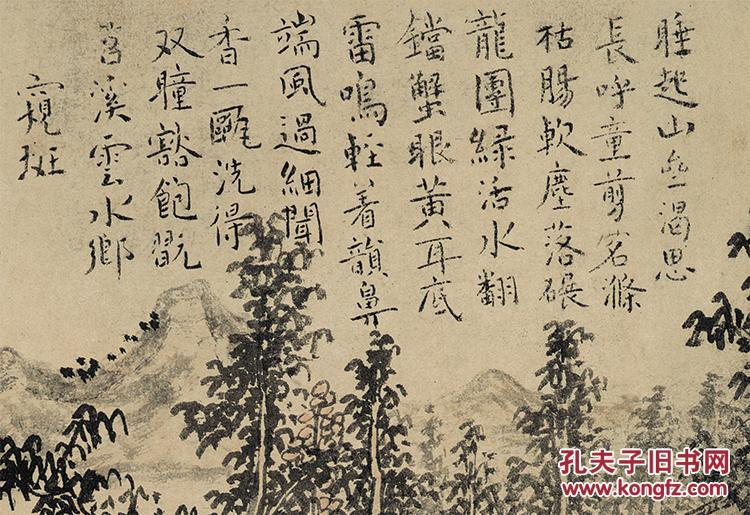 睡起山垒渴思
長呼童剪茗滌
枯腸軟塵落碾
龍團緑活水翻
鐺蟹眼黄耳底
雷鳴輕着韻鼻
端風過細聞
香一甌洗得
双瞳豁飽翫
苕溪雲水鄉
窺斑
孔夫子旧书网
www.kongfz.com